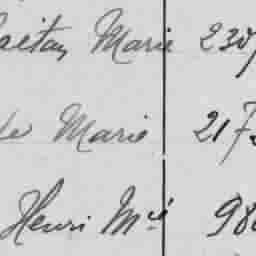 aëtan Marie 230
Marie 217
Henri Mie 98